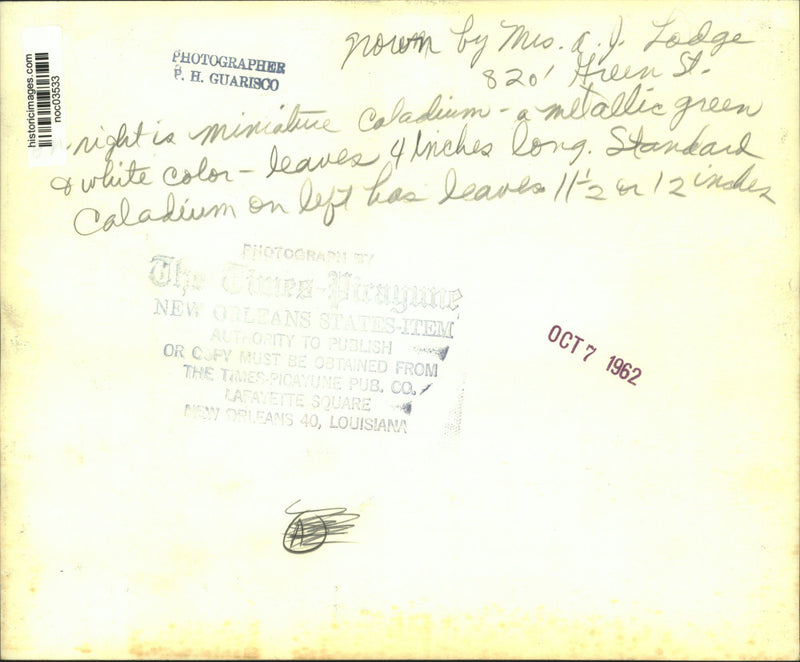 historicimages.com
noc03533
PHOTOGRAPHER
P. H. GUARISCO
grown by Mrs. A. J. Lodge
8201 Green St.
right is miniature caladium - a metallic green
& white color - leaves 4 inches long. Standard
caladium on left has leaves 11 1/2 or 12 inches
PHOTOGRAPH BY
The Times-Picayune
NEW ORLEANS STATES-ITEM
AUTHORITY TO PUBLISH
OR COPY MUST BE OBTAINED FROM
THE TIMES-PICAYUNE PUB. CO.
LAFAYETTE SQUARE
NEW ORLEANS 40, LOUISIANA
OCT 7 1962